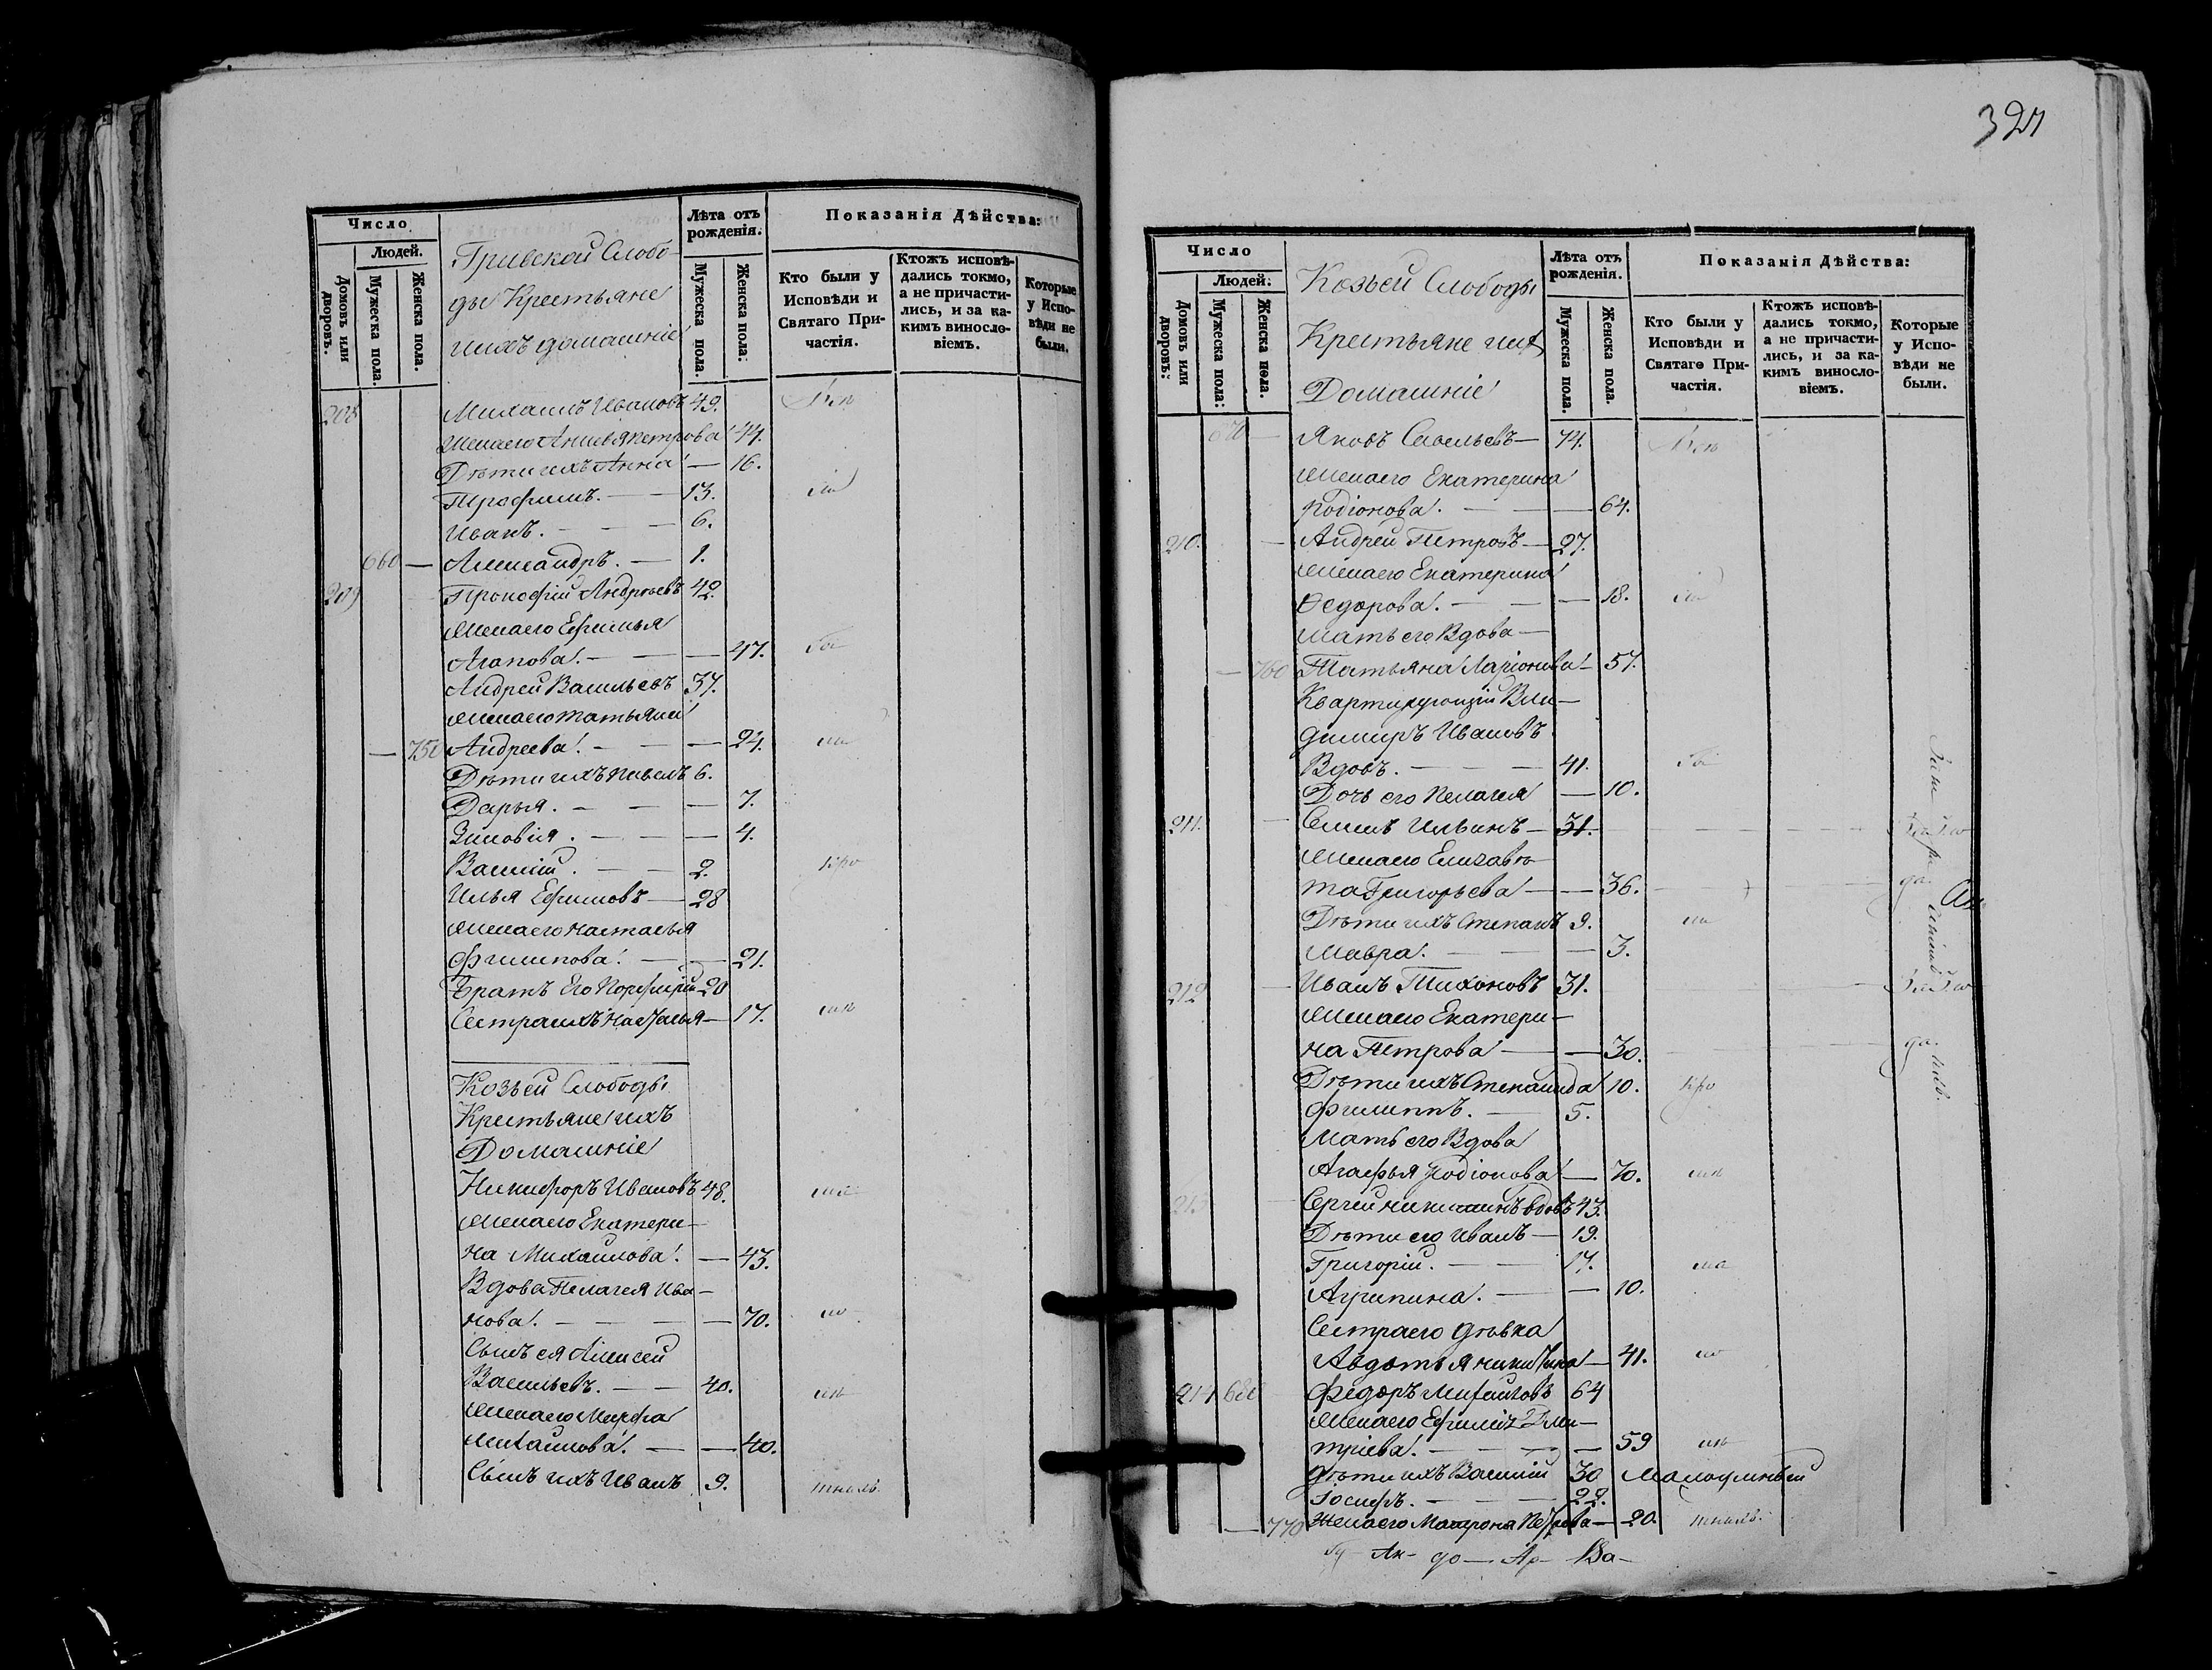 Число
Людей.
Домовъ или дворовъ.
Мужеска пола.
Женска пола.
Гривской Слобо-
ды Крестьяне
ихъ домашніе
Лѣта отъ рожденія.
Мужеска пола.
Женска пола.
Показанія Дѣйства:
Кто были у Исповѣди и Святаго При-частія.
Ктожъ исповѣ-дались токмо, а не причасти-лись, и за ка-кимъ виносло-віемъ.
Которые у Испо-вѣди не были.
208 Михаилъ Ивановъ 49.
Жена его Анисья Петрова 44.
Дѣти ихъ Анна — 16.
Трофимъ. — 13.
Иванъ. — 6.
660 — Александръ. — 1.
209 Прокофій Андреевъ 42.
Жена его Ефимья
Агапова. — 47.
Андрей Васильевъ 37.
Жена его Татьяна
— 750 Андреева. — 24.
Дѣти ихъ Павелъ 6.
Дарья. — 7.
Зиновія. — 4.
Василій. — 2.
Илья Ефимовъ — 28
Жена его Настасья
Филипова. — 21.
Братъ Его Порфирій 20
Сестра ихъ Наталья — 17.
Козьей Слободы
Крестьяне ихъ
Домашніе
Никифоръ Ивановъ 48.
Жена его Екатери-
на Михайлова. — 43.
Вдова Пелагея Ива-
нова. — 70.
Сынъ ея Алексей
Васильевъ. — 40.
Жена его Марфа
Михайлова. — 40.
Сынъ ихъ Иванъ 9.
Число
Людей.
Домовъ или дворовъ.
Мужеска пола.
Женска пола.
Козьей Слободы
Крестьяне ихъ
Домашніе
Лѣта отъ рожденія.
Мужеска пола.
Женска пола.
Показанія Дѣйства:
Кто были у Исповѣди и Святаго При-частія.
Ктожъ исповѣ-дались токмо, а не причасти-лись, и за ка-кимъ виносло-віемъ.
Которые у Испо-вѣди не были.
670 — Яковъ Савельевъ — 74.
Жена его Екатерина
Родіонова. — 64.
210. — Андрей Петровъ — 27.
Жена его Екатерина
Ѳедорова. — 18.
Мать его Вдова —
— 760 Татьяна Ларіонова — 57.
Квартирующій Вла-
димиръ Ивановъ
Вдовъ. — 41.
Дочь его Пелагея — 10.
211. — Ильинъ — 31.
Жена его Елизаве-
та Григорьева — 36. да
Дѣти ихъ Степанъ 9.
Мавра. — 3.
212 — Иванъ Тихоновъ 31.
Жена его Екатери-
на Петрова — 30. да
Дѣти ихъ Степанида 10.
Филиппъ. — 5.
Мать его Вдова
Агафья Родіонова — 70.
Сергей Никитинъ вдовъ 43.
Дѣти его Иванъ — 19.
Григорій. — 17.
Агрипина. — 10.
Сестра его дѣвка
Авдотья Никитина — 41.
214 680 Федоръ Михайловъ 64
Жена его Ефимія Дми-
тріева. — 59
Дѣти ихъ Василій 30 Малоумный
Іосифъ. — 22.
— 770 Жена его Матрона Петрова — 20.